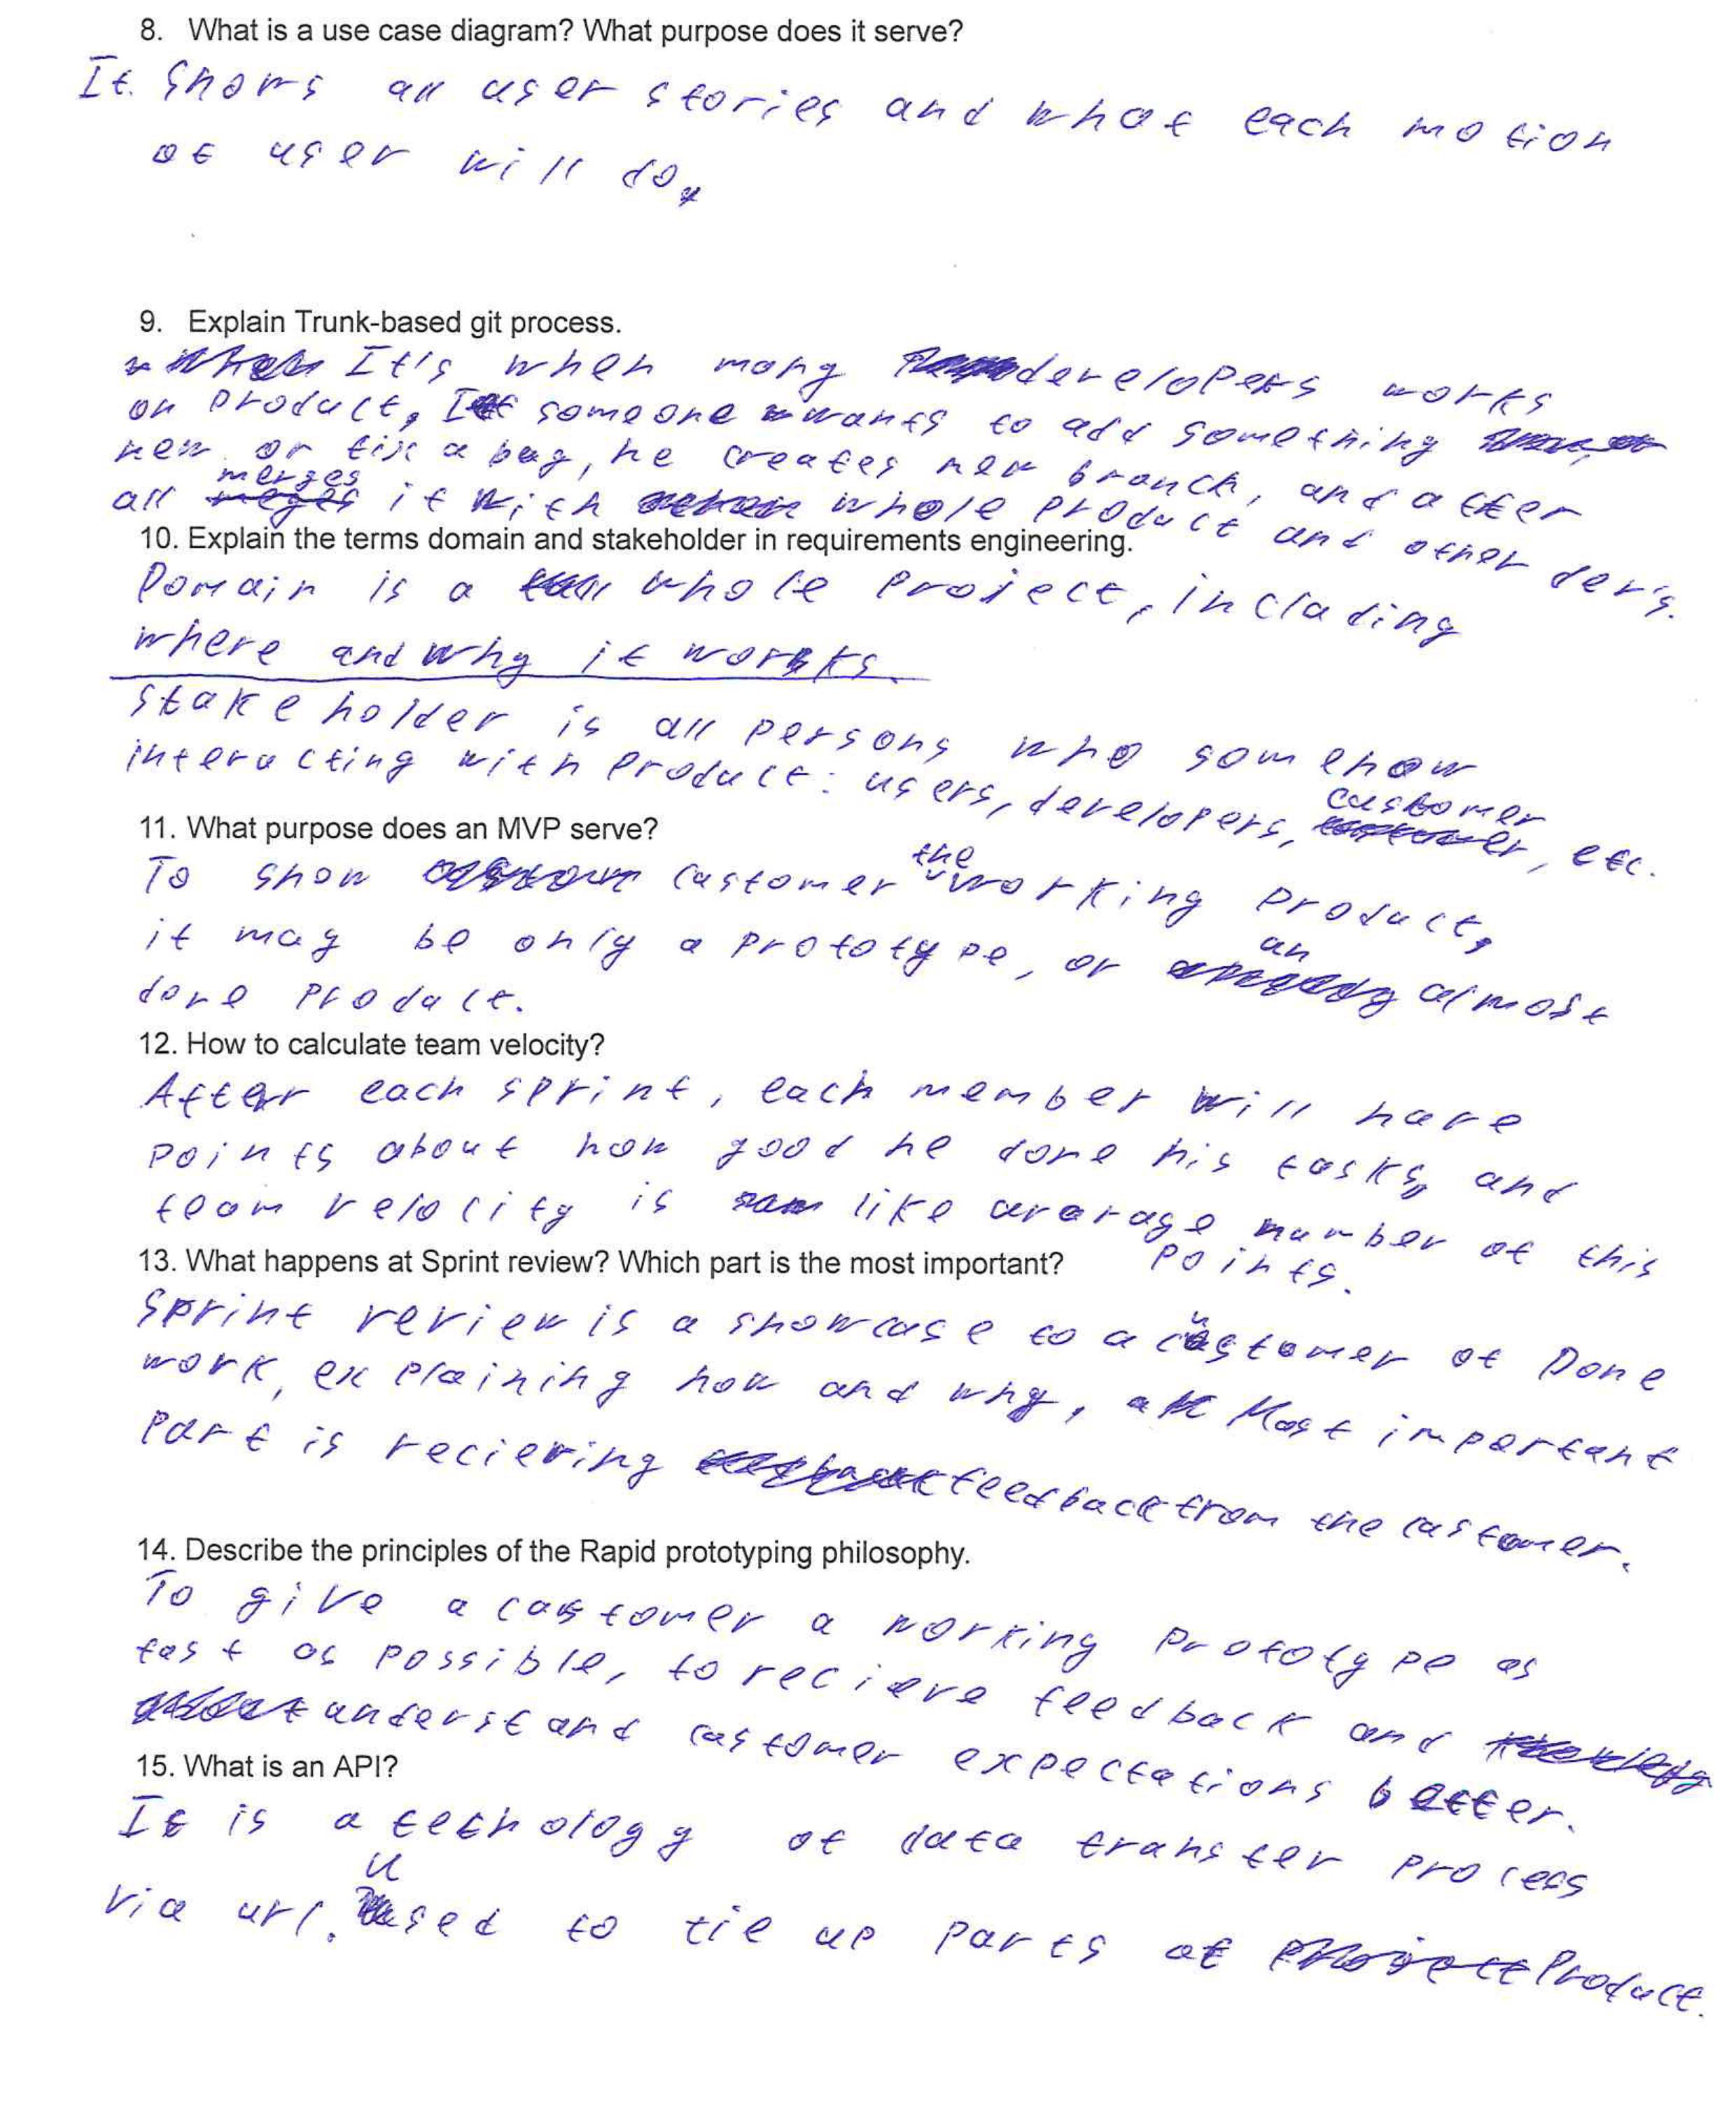 8. What is a use case diagram? What purpose does it serve?
It shows all user stories and what each motion
of user will do.
9. Explain Trunk-based git process.
It's when many developers works
on product, If someone wants to add something
new or fix a bug, he creates new branch, and after
all merges it with whole product and other dev's.
10. Explain the terms domain and stakeholder in requirements engineering.
Domain is a whole project, including
where and why it works.
Stakeholder is all persons who somehow
interacting with product: users, developers, customer, etc.
11. What purpose does an MVP serve?
To show customer the working product,
it may be only a prototype, or an almost
done product.
12. How to calculate team velocity?
After each sprint, each member will have
points about how good he done his tasks, and
team velocity is like avarage number of this
points.
13. What happens at Sprint review? Which part is the most important?
Sprint review is a showcase to a customer of Done
work, explaining how and why, Most important
part is recieving feedback from the customer.
14. Describe the principles of the Rapid prototyping philosophy.
To give a customer a working prototype as
fast as possible, to recieve feedback and
understand customer expectations better.
15. What is an API?
It is a techology of data transfer process
via url. used to tie up parts of Product.